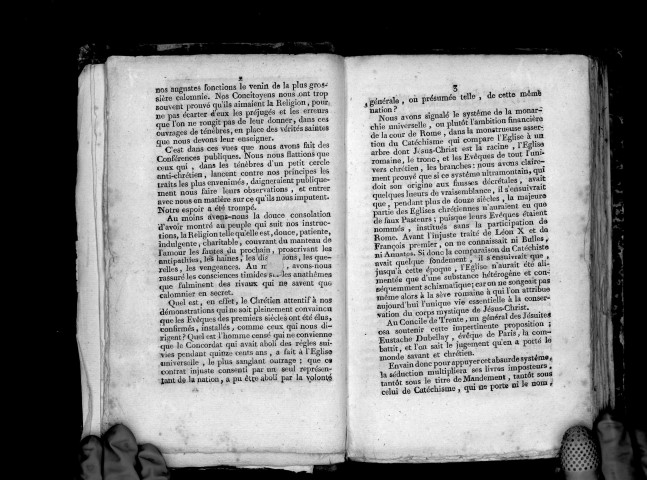 2
nos augustes fonctions le venin de la plus gros-
sière calomnie. Nos Concitoyens nous ont trop
souvent prouvé qu'ils aimaient la Religion, pour
ne pas écarter d'eux les préjugés et les erreurs
que l'on ne rougit pas de leur donner, dans ces
ouvrages de ténèbres, en place des vérités saintes
que nous devons leur enseigner.
C'est dans ces vues que nous avons fait des
Conférences publiques. Nous nous flattions que
ceux qui, dans les ténèbres d'un petit cercle
anti-chrétien, lancent contre nos principes les
traits les plus envenimés, daigneraient publique-
ment nous faire leurs observations, et entrer
avec nous en matière sur ce qu'ils nous imputent.
Notre espoir a été trompé.
Au moins avons-nous la douce consolation
d'avoir montré au peuple qui suit nos instruc-
tions, la Religion telle qu'elle est, douce, patiente,
indulgente, charitable, couvrant du manteau de
l'amour les fautes du prochain, proscrivant les
antipathies, les haines, les dis ions, les que-
relles, les vengeances. Au m , avons-nous
rassuré les consciences timides sur les anathèmes
que fulminent des rivaux qui ne savent que
calomnier en secret.
Quel est, en effet, le Chrétien attentif à nos
démonstrations qui ne soit pleinement convaincu
que les Evêques des premiers siècles ont été élus,
confirmés, installés, comme ceux qui nous di-
rigent? Quel est l'homme sensé qui ne convienne
que le Concordat qui avait aboli des règles sui-
vies pendant quinze cents ans, a fait à l'Eglise
universelle, le plus sanglant outrage; que ce
contrat injuste consenti par un seul représen-
tant de la nation, a pu être aboli par la volonté
3
générale, ou présumée telle, de cette même
nation?
Nous avons signalé le système de la monar-
chie universelle, ou plutôt l'ambition financière
de la cour de Rome, dans la monstrueuse asser-
tion du Catéchisme qui compare l'Eglise à un
arbre dont Jesus-Christ est la racine, l'Eglise
romaine, le tronc, et les Evêques de tout l'uni-
vers chrétien, les branches: nous avons claire-
ment prouvé que si ce système ultramontain, qui
doit son origine aux fausses décrétales, avait
quelques lueurs de vraisemblance, il s'ensuivrait
que, pendant plus de douze siècles, la majeure
partie des Eglises chrétiennes n'auraient eu que
de faux Pasteurs; puisque leurs Evêques étaient
nommés, institués sans la participation de
Rome. Avant l'injuste traité de Léon X et de
François premier, on ne connaissait ni Bulles,
ni Annates. Si donc la comparaison du Catéchiste
avait quelque fondement, il s'ensuivrait que,
jusqu'à cette époque, l'Eglise n'aurait été ali-
mentée que d'une substance hétérogène et con-
séquemment schismatique; car on ne songeait pas
même alors à la sève romaine à qui l'on attribue
aujourd'hui l'unique vie essentielle à la conser-
vation du corps mystique de Jésus-Christ.
Au Concile de Trente, un général des Jésuites
osa soutenir cette impertinente proposition;
Eustache Dubellay, évêque de Paris, la com-
battit, et l'on sait le jugement qu'en a porté le
monde savant et chrétien.
En vain donc pour appuyer cet absurde système,
la séduction multipliera ses livres imposteurs,
tantôt sous le titre de Mandement, tantôt sous
celui de Catéchisme, qui ne porte ni le nom,